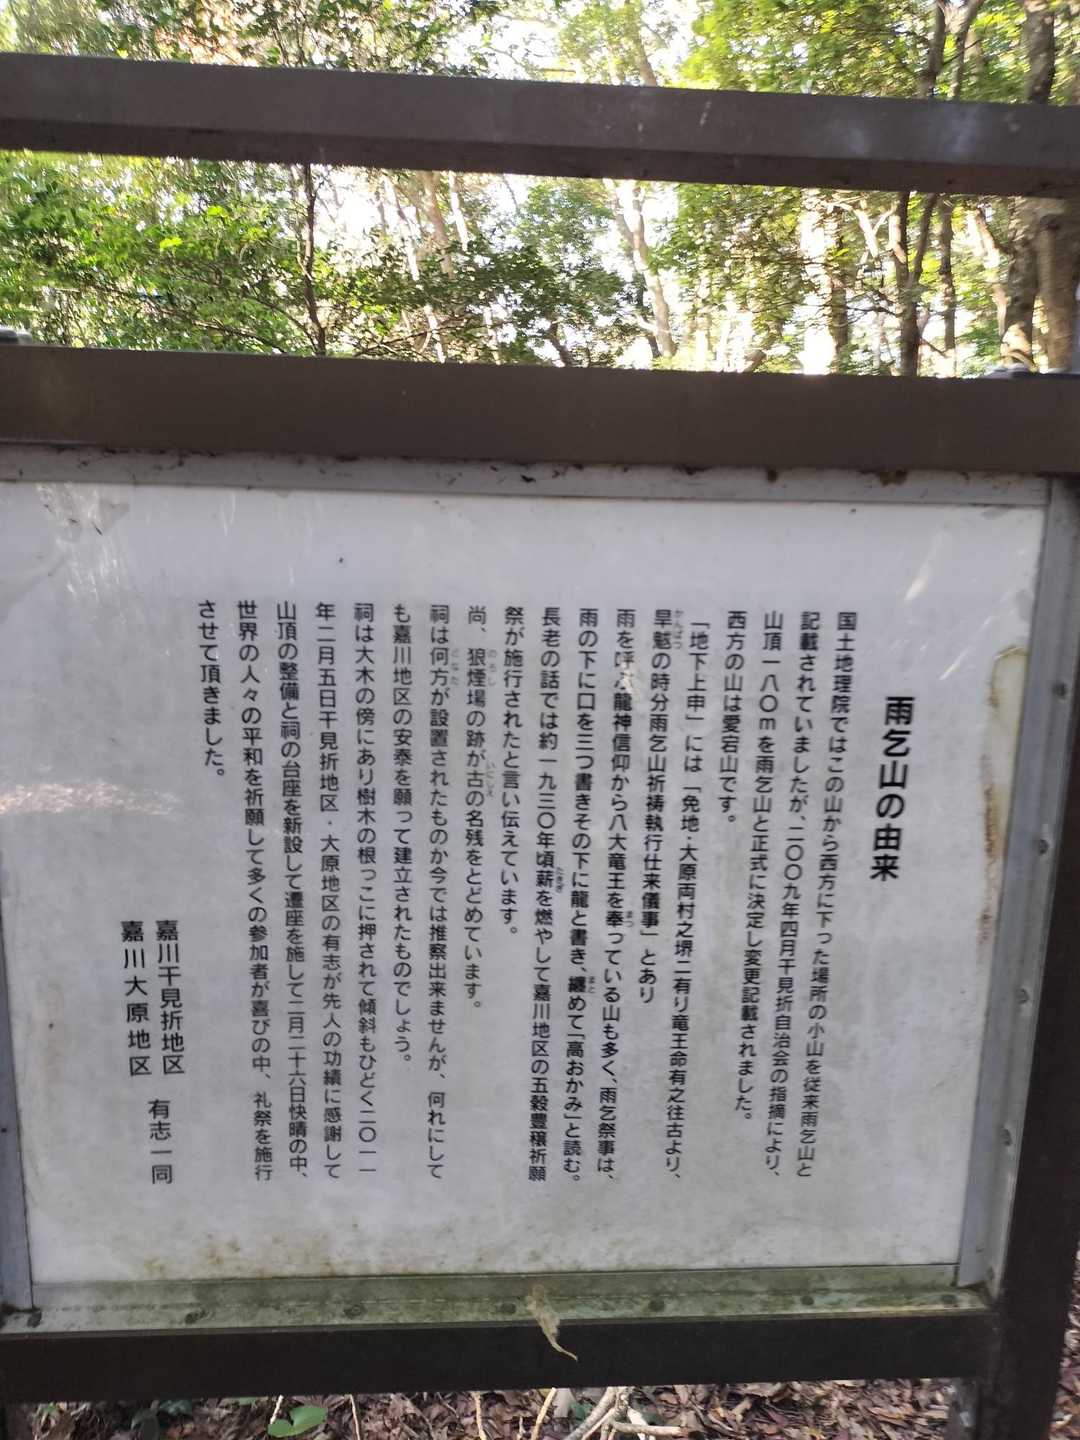 雨乞山の由来
国土地理院ではこの山から西方に下った場所の小山を従来雨乞山と
記載されていましたが、二〇〇九年四月干見折自治会の指摘により、
山頂一八〇mを雨乞山と正式に決定し変更記載されました。
西方の山は愛宕山です。
「地下上申」には「免地・大原両村之堺ニ有り竜王命有之往古より、
旱魃の時分雨乞山祈祷執行仕来儀事」とあり
かんばつ
雨を呼ぶ龍神信仰から八大竜王を奉っている山も多く、雨乞祭事は、
まつ
雨の下に口を三つ書きその下に龍と書き、纏めて「高おかみ」と読む。
まと
長老の話では約一九三〇年頃薪を燃やして嘉川地区の五穀豊穣祈願
たきぎ
祭が施行されたと言い伝えています。
尚、狼煙場の跡が古の名残をとどめています。
のろし
いにしえ
祠は何方が設置されたものか今では推察出来ませんが、何れにして
どなた
も嘉川地区の安泰を願って建立されたものでしょう。
祠は大木の傍にあり樹木の根っこに押されて傾斜もひどく二〇一一
年二月五日干見折地区・大原地区の有志が先人の功績に感謝して
山頂の整備と祠の台座を新設して遷座を施して二月二十六日快晴の中、
世界の人々の平和を祈願して多くの参加者が喜びの中、礼祭を施行
させて頂きました。
嘉川干見折地区 有志一同
嘉川大原地区